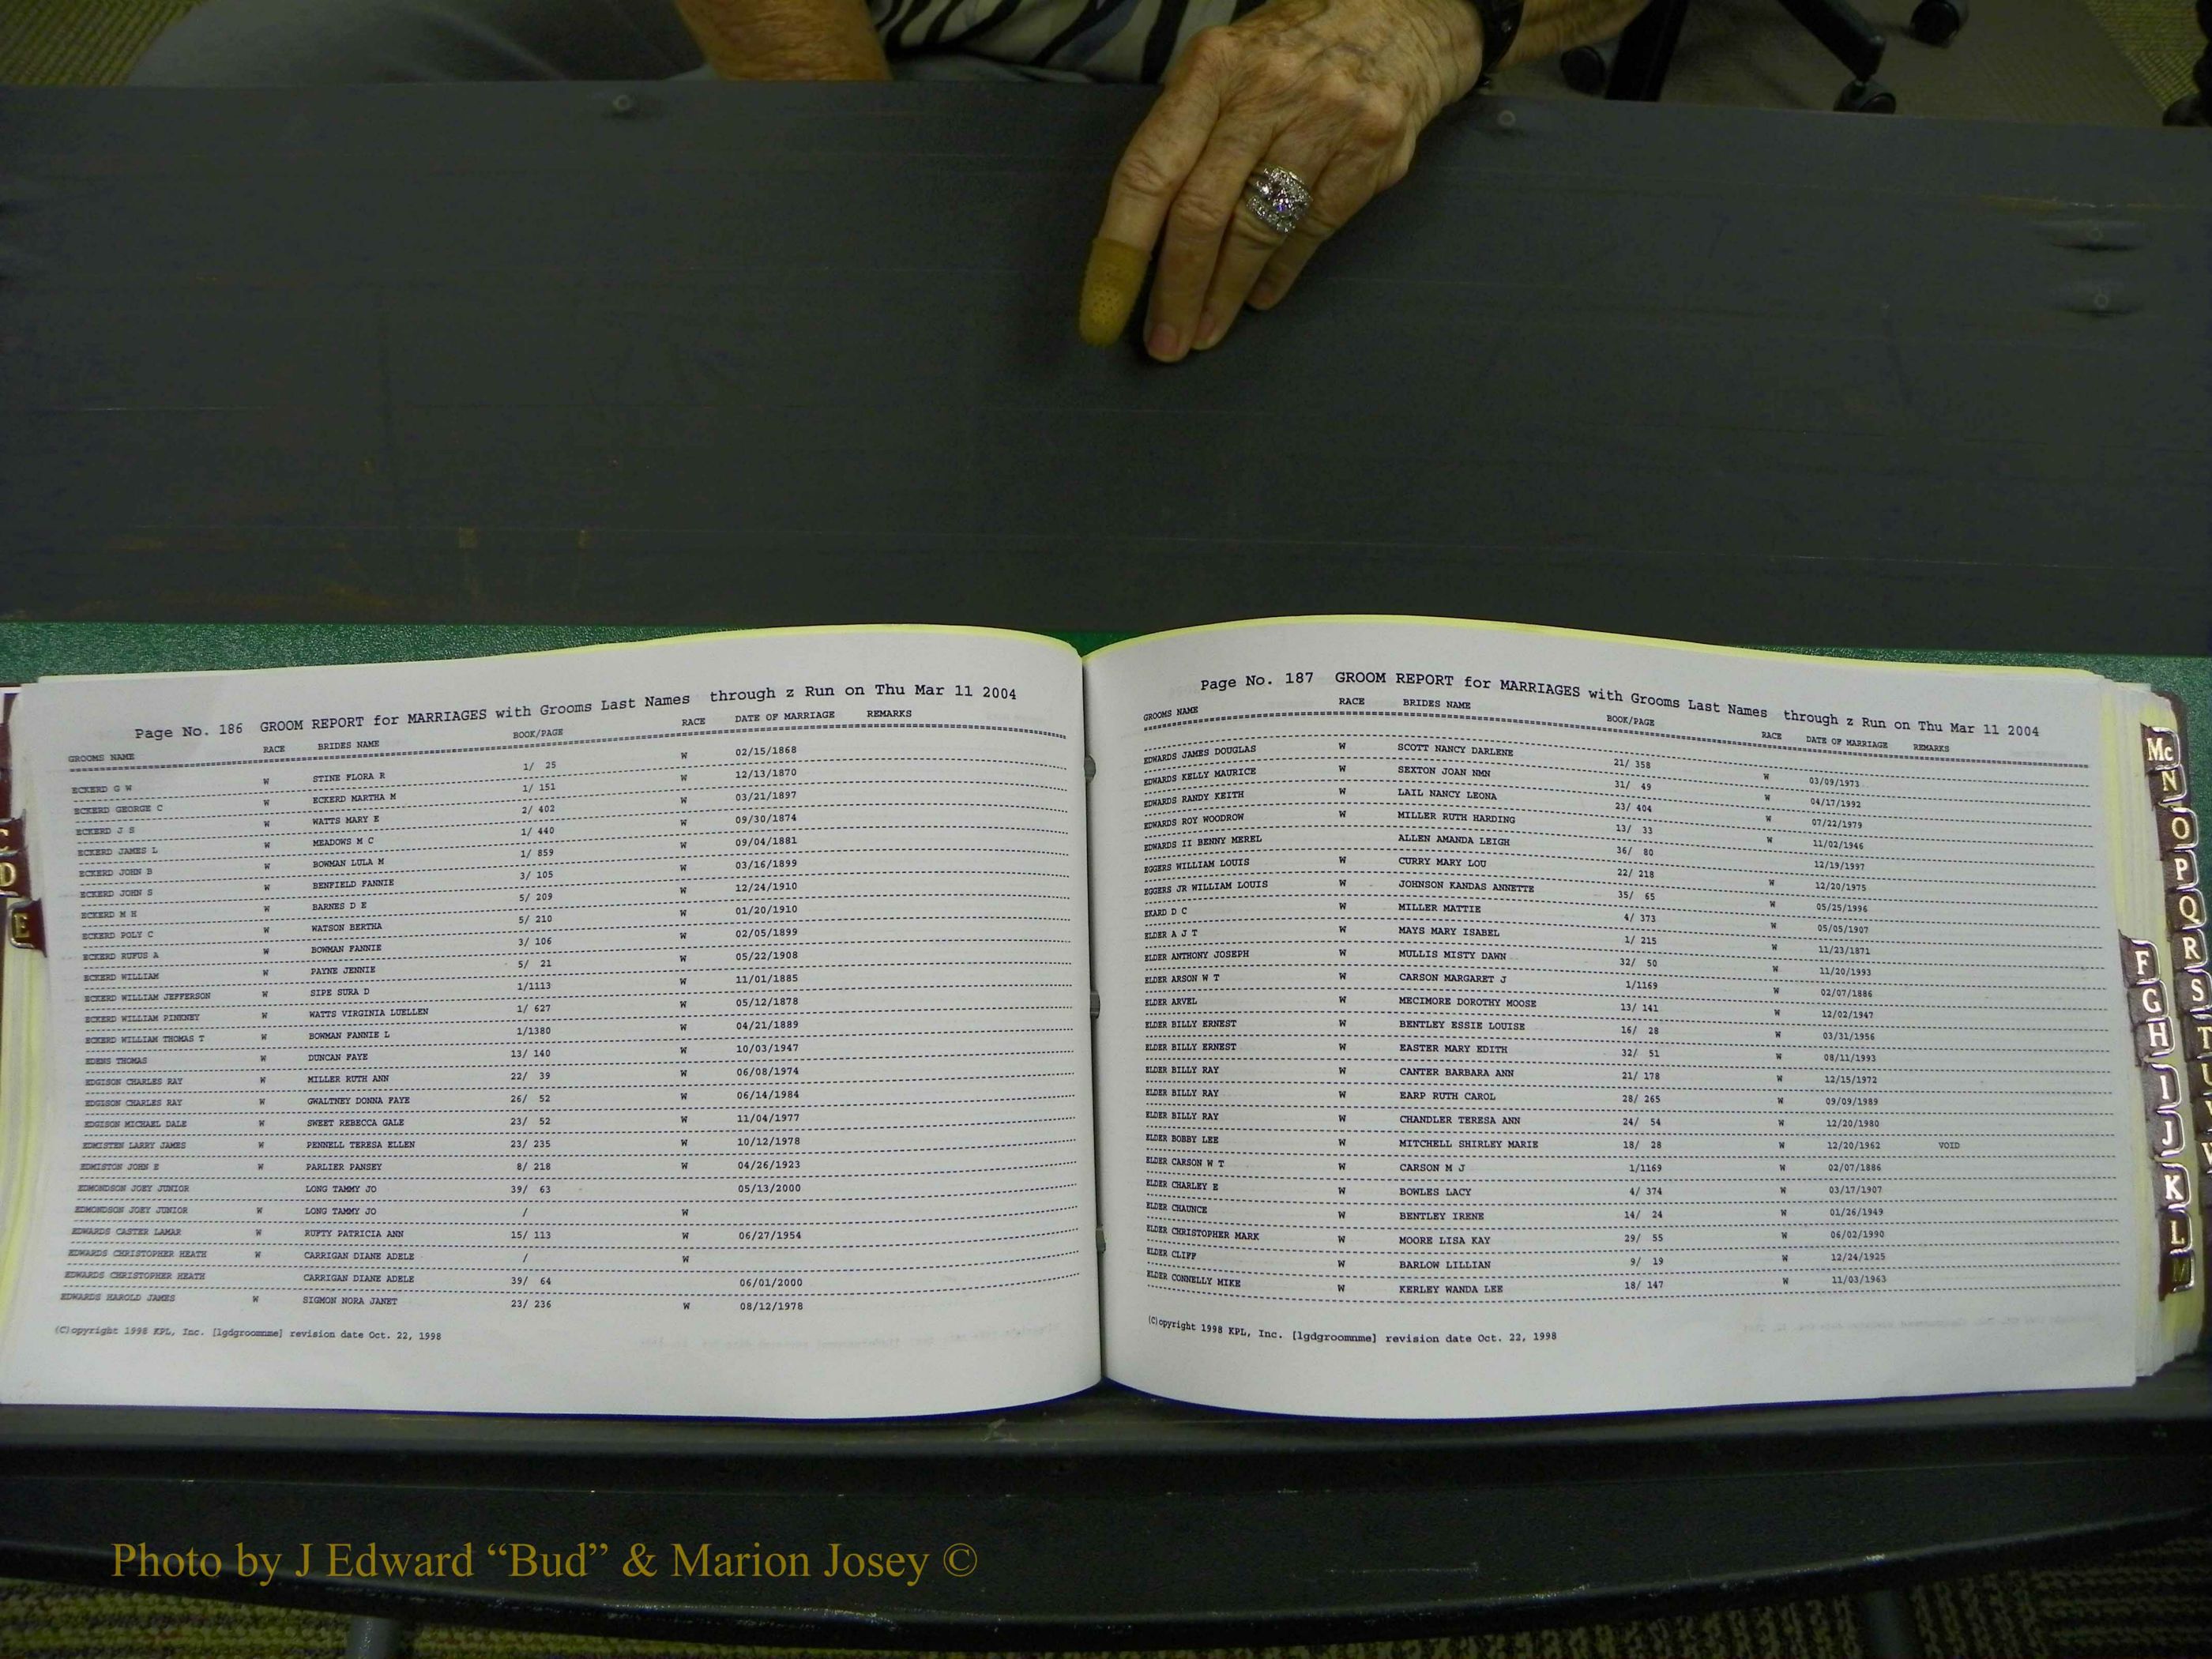 Page No. 186 GROOM REPORT for MARRIAGES with Grooms Last Names through z Run on Thu Mar 11 2004
GROOMS NAME RACE BRIDES NAME BOOK/PAGE RACE DATE OF MARRIAGE REMARKS
ECKERD G W W STINE FLORA R 1/ 25 W 02/15/1868
ECKERD GEORGE C W ECKERD MARTHA M 1/ 151 W 12/13/1870
ECKERD J S W WATTS MARY E 2/ 402 W 03/21/1897
ECKERD JAMES L W MEADOWS M C 1/ 440 W 09/30/1874
ECKERD JOHN B W BOWMAN LULA M 1/ 859 W 09/04/1881
ECKERD JOHN S W BENFIELD FANNIE 3/ 105 W 03/16/1899
ECKERD M H W BARNES D E 5/ 209 W 12/24/1910
ECKERD POLY C W WATSON BERTHA 5/ 210 W 01/20/1910
ECKERD RUFUS A W BOWMAN FANNIE 3/ 106 W 02/05/1899
ECKERD WILLIAM W PAYNE JENNIE 5/ 21 W 05/22/1908
ECKERD WILLIAM JEFFERSON W SIPE SURA D 1/1113 W 11/01/1885
ECKERD WILLIAM PINKNEY W WATTS VIRGINIA LUELLEN 1/ 627 W 05/12/1878
ECKERD WILLIAM THOMAS T W BOWMAN FANNIE L 1/1380 W 04/21/1889
EDENS THOMAS W DUNCAN FAYE 13/ 140 W 10/03/1947
EDGISON CHARLES RAY W MILLER RUTH ANN 22/ 39 W 06/08/1974
EDGISON CHARLES RAY W GWALTNEY DONNA FAYE 26/ 52 W 06/14/1984
EDGISON MICHAEL DALE W SWEET REBECCA GALE 23/ 52 W 11/04/1977
EDMISTEN LARRY JAMES W PENNELL TERESA ELLEN 23/ 235 W 10/12/1978
EDMISTON JOHN E W PARLIER PANSEY 8/ 218 W 04/26/1923
EDMONDSON JOEY JUNIOR LONG TAMMY JO 39/ 63 05/13/2000
EDMONDSON JOEY JUNIOR W LONG TAMMY JO / W
EDWARDS CASTER LAMAR W RUFTY PATRICIA ANN 15/ 113 W 06/27/1954
EDWARDS CHRISTOPHER HEATH W CARRIGAN DIANE ADELE / W
EDWARDS CHRISTOPHER HEATH CARRIGAN DIANE ADELE 39/ 64 06/01/2000
EDWARDS HAROLD JAMES W SIGMON NORA JANET 23/ 236 W 08/12/1978
(C)opyright 1998 KPL, Inc. [lgdgroomnme] revision date Oct. 22, 1998
Page No. 187 GROOM REPORT for MARRIAGES with Grooms Last Names through z Run on Thu Mar 11 2004
GROOMS NAME RACE BRIDES NAME BOOK/PAGE RACE DATE OF MARRIAGE REMARKS
EDWARDS JAMES DOUGLAS W SCOTT NANCY DARLENE 21/ 358 W 03/09/1973
EDWARDS KELLY MAURICE W SEXTON JOAN NMN 31/ 49 W 04/17/1992
EDWARDS RANDY KEITH W LAIL NANCY LEONA 23/ 404 W 07/22/1979
EDWARDS ROY WOODROW W MILLER RUTH HARDING 13/ 33 W 11/02/1946
EDWARDS II BENNY MEREL ALLEN AMANDA LEIGH 36/ 80 12/19/1997
EGGERS WILLIAM LOUIS W CURRY MARY LOU 22/ 218 W 12/20/1975
EGGERS JR WILLIAM LOUIS W JOHNSON KANDAS ANNETTE 35/ 65 W 05/25/1996
EKARD D C W MILLER MATTIE 4/ 373 05/05/1907
ELDER A J T W MAYS MARY ISABEL 1/ 215 W 11/23/1871
ELDER ANTHONY JOSEPH W MULLIS MISTY DAWN 32/ 50 W 11/20/1993
ELDER ARSON W T W CARSON MARGARET J 1/1169 W 02/07/1886
ELDER ARVEL W MECIMORE DOROTHY MOOSE 13/ 141 W 12/02/1947
ELDER BILLY ERNEST W BENTLEY ESSIE LOUISE 16/ 28 W 03/31/1956
ELDER BILLY ERNEST W EASTER MARY EDITH 32/ 51 W 08/11/1993
ELDER BILLY RAY W CANTER BARBARA ANN 21/ 178 W 12/15/1972
ELDER BILLY RAY W EARP RUTH CAROL 28/ 265 W 09/09/1989
ELDER BILLY RAY W CHANDLER TERESA ANN 24/ 54 W 12/20/1980
ELDER BOBBY LEE W MITCHELL SHIRLEY MARIE 18/ 28 W 12/20/1962 VOID
ELDER CARSON W T W CARSON M J 1/1169 W 02/07/1886
ELDER CHARLEY E W BOWLES LACY 4/ 374 W 03/17/1907
ELDER CHAUNCE W BENTLEY IRENE 14/ 24 W 01/26/1949
ELDER CHRISTOPHER MARK W MOORE LISA KAY 29/ 55 W 06/02/1990
ELDER CLIFF W BARLOW LILLIAN 9/ 19 W 12/24/1925
ELDER CONNELLY MIKE W KERLEY WANDA LEE 18/ 147 W 11/03/1963
(C)opyright 1998 KPL, Inc. [lgdgroomnme] revision date Oct. 22, 1998
C
D
E
F
G
H
I
J
K
L
M
Mc
N
O
P
Q
R
S
T
U
V
W
Photo by J Edward “Bud” & Marion Josey ©